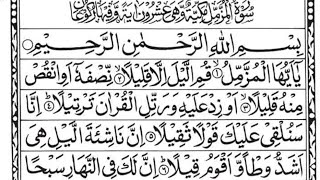 سُوْرَةُ الْمُزَّمِّلِ مَكِّيَّةٌ وَّهِيَ عِشْرُوْنَ اٰيَةً وَّفِيْهَا رُكُوْعَانِ
بِسْمِ اللّٰهِ الرَّحْمٰنِ الرَّحِيْمِ
يٰۤاَيُّهَا الْمُزَّمِّلُ ۙ۱ قُمِ الَّيْلَ اِلَّا قَلِيْلًا ۙ۲ نِّصْفَهٗۤ اَوِ انْقُصْ
مِنْهُ قَلِيْلًا ۙ۳ اَوْ زِدْ عَلَيْهِ وَرَتِّلِ الْقُرْاٰنَ تَرْتِيْلًا ؕ۴ اِنَّا
سَنُلْقِيْ عَلَيْكَ قَوْلًا ثَقِيْلًا ۵ اِنَّ نَاشِئَةَ الَّيْلِ هِيَ
اَشَدُّ وَطْاً وَّاَقْوَمُ قِيْلًا ؕ۶ اِنَّ لَكَ فِي النَّهَارِ سَبْحًا